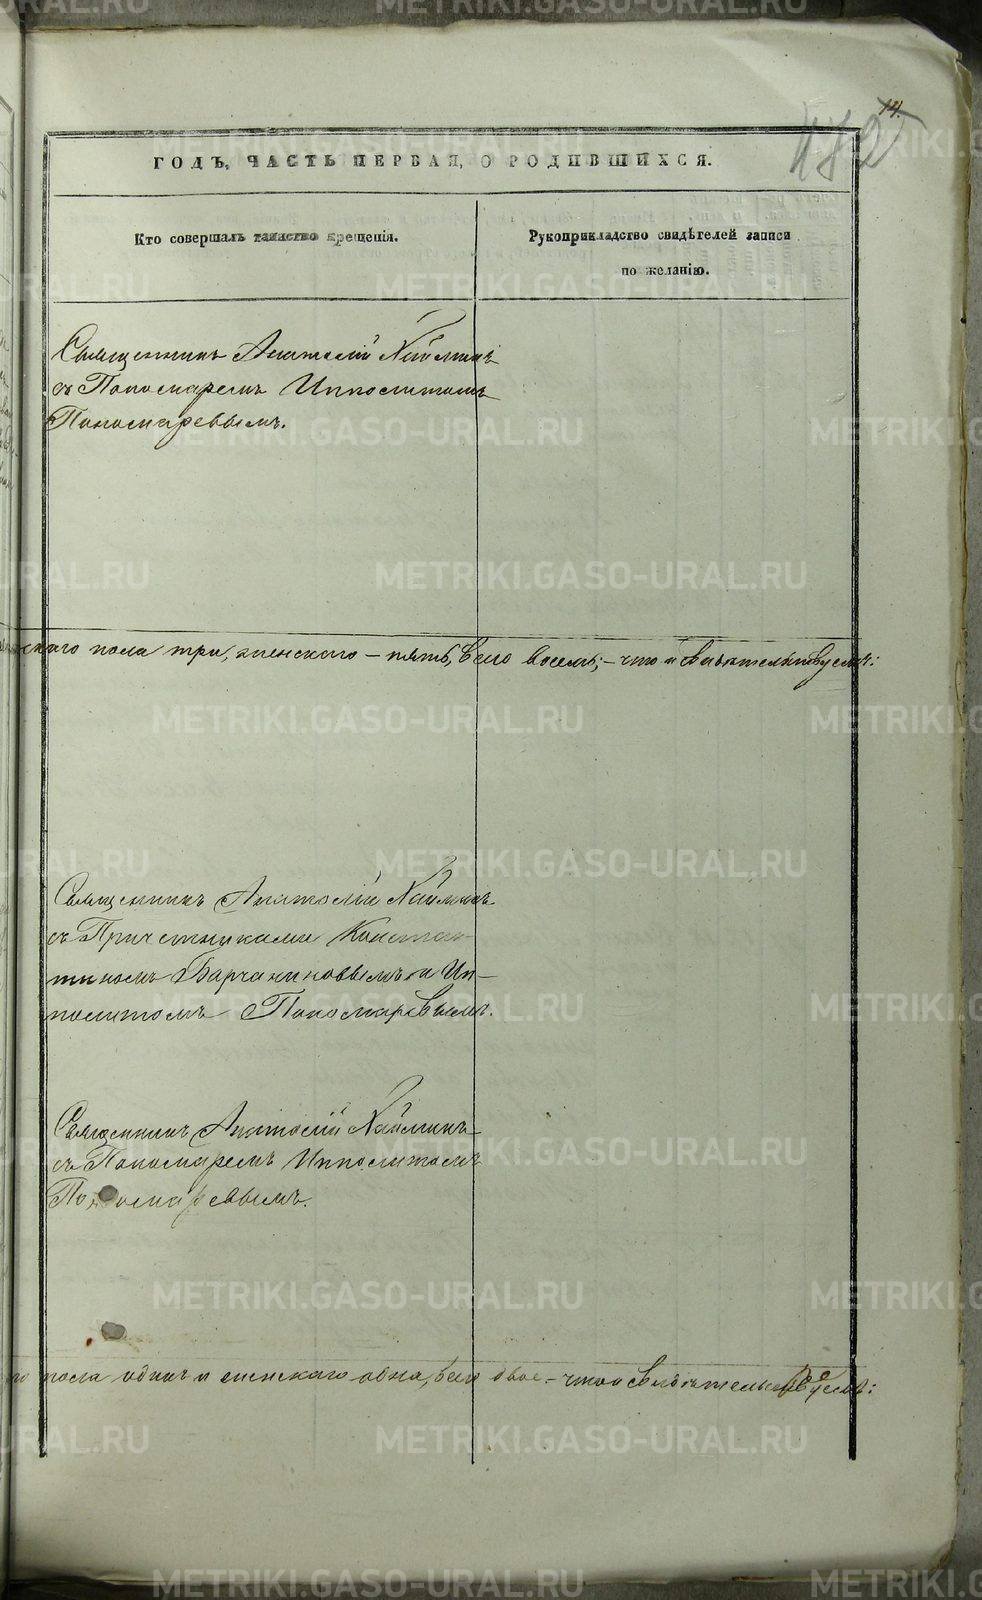 14.
472
ГОДЪ, ЧАСТЬ ПЕРВАЯ, О РОДИВШИХСЯ.
Кто совершалъ таинство крещенія.
Рукоприкладство свидѣтелей записи
по желанію.
Священникъ Анатолій
съ Пономаремъ Ипполитомъ
Пономаревымъ.
пола три, женскаго – пять, всего восемь; – что и свидѣтельствуемъ:
Священникъ Анатолій
съ Причетниками Констан-
тиномъ и Ип-
политомъ Пономаревымъ.
Священникъ Анатолій
съ Пономаремъ Ипполитомъ
Пономаревымъ.
пола одинъ и женскаго одна, всего двое – что и свидѣтельствуемъ:
METRIKI.GASO-URAL.RU